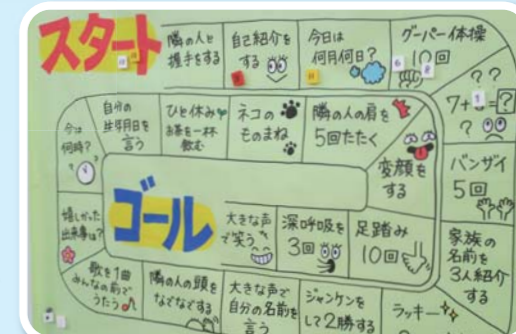 スタート
隣の人と
握手をする
自己紹介を
する
今日は
何月何日?
グーパー体操
10回
? ?
7+?=?
?
バンザイ
5回
家族の
名前を
3人紹介
する
ラッキー
ジャンケンを
して2勝する
大きな声で
自分の名前を
言う
隣の人の頭を
なでなでする
歌を1曲
みんなの前で
うたう♪
嬉しかった
出来事は?
今は
何時?
自分の
生年月日を
言う
ひと休み
お茶を一杯
飲む
ネコの
ものまね
隣の人の肩を
5回たたく
変顔を
する
足踏み
10回
深呼吸を
3回
大きな声
で笑う
ゴール